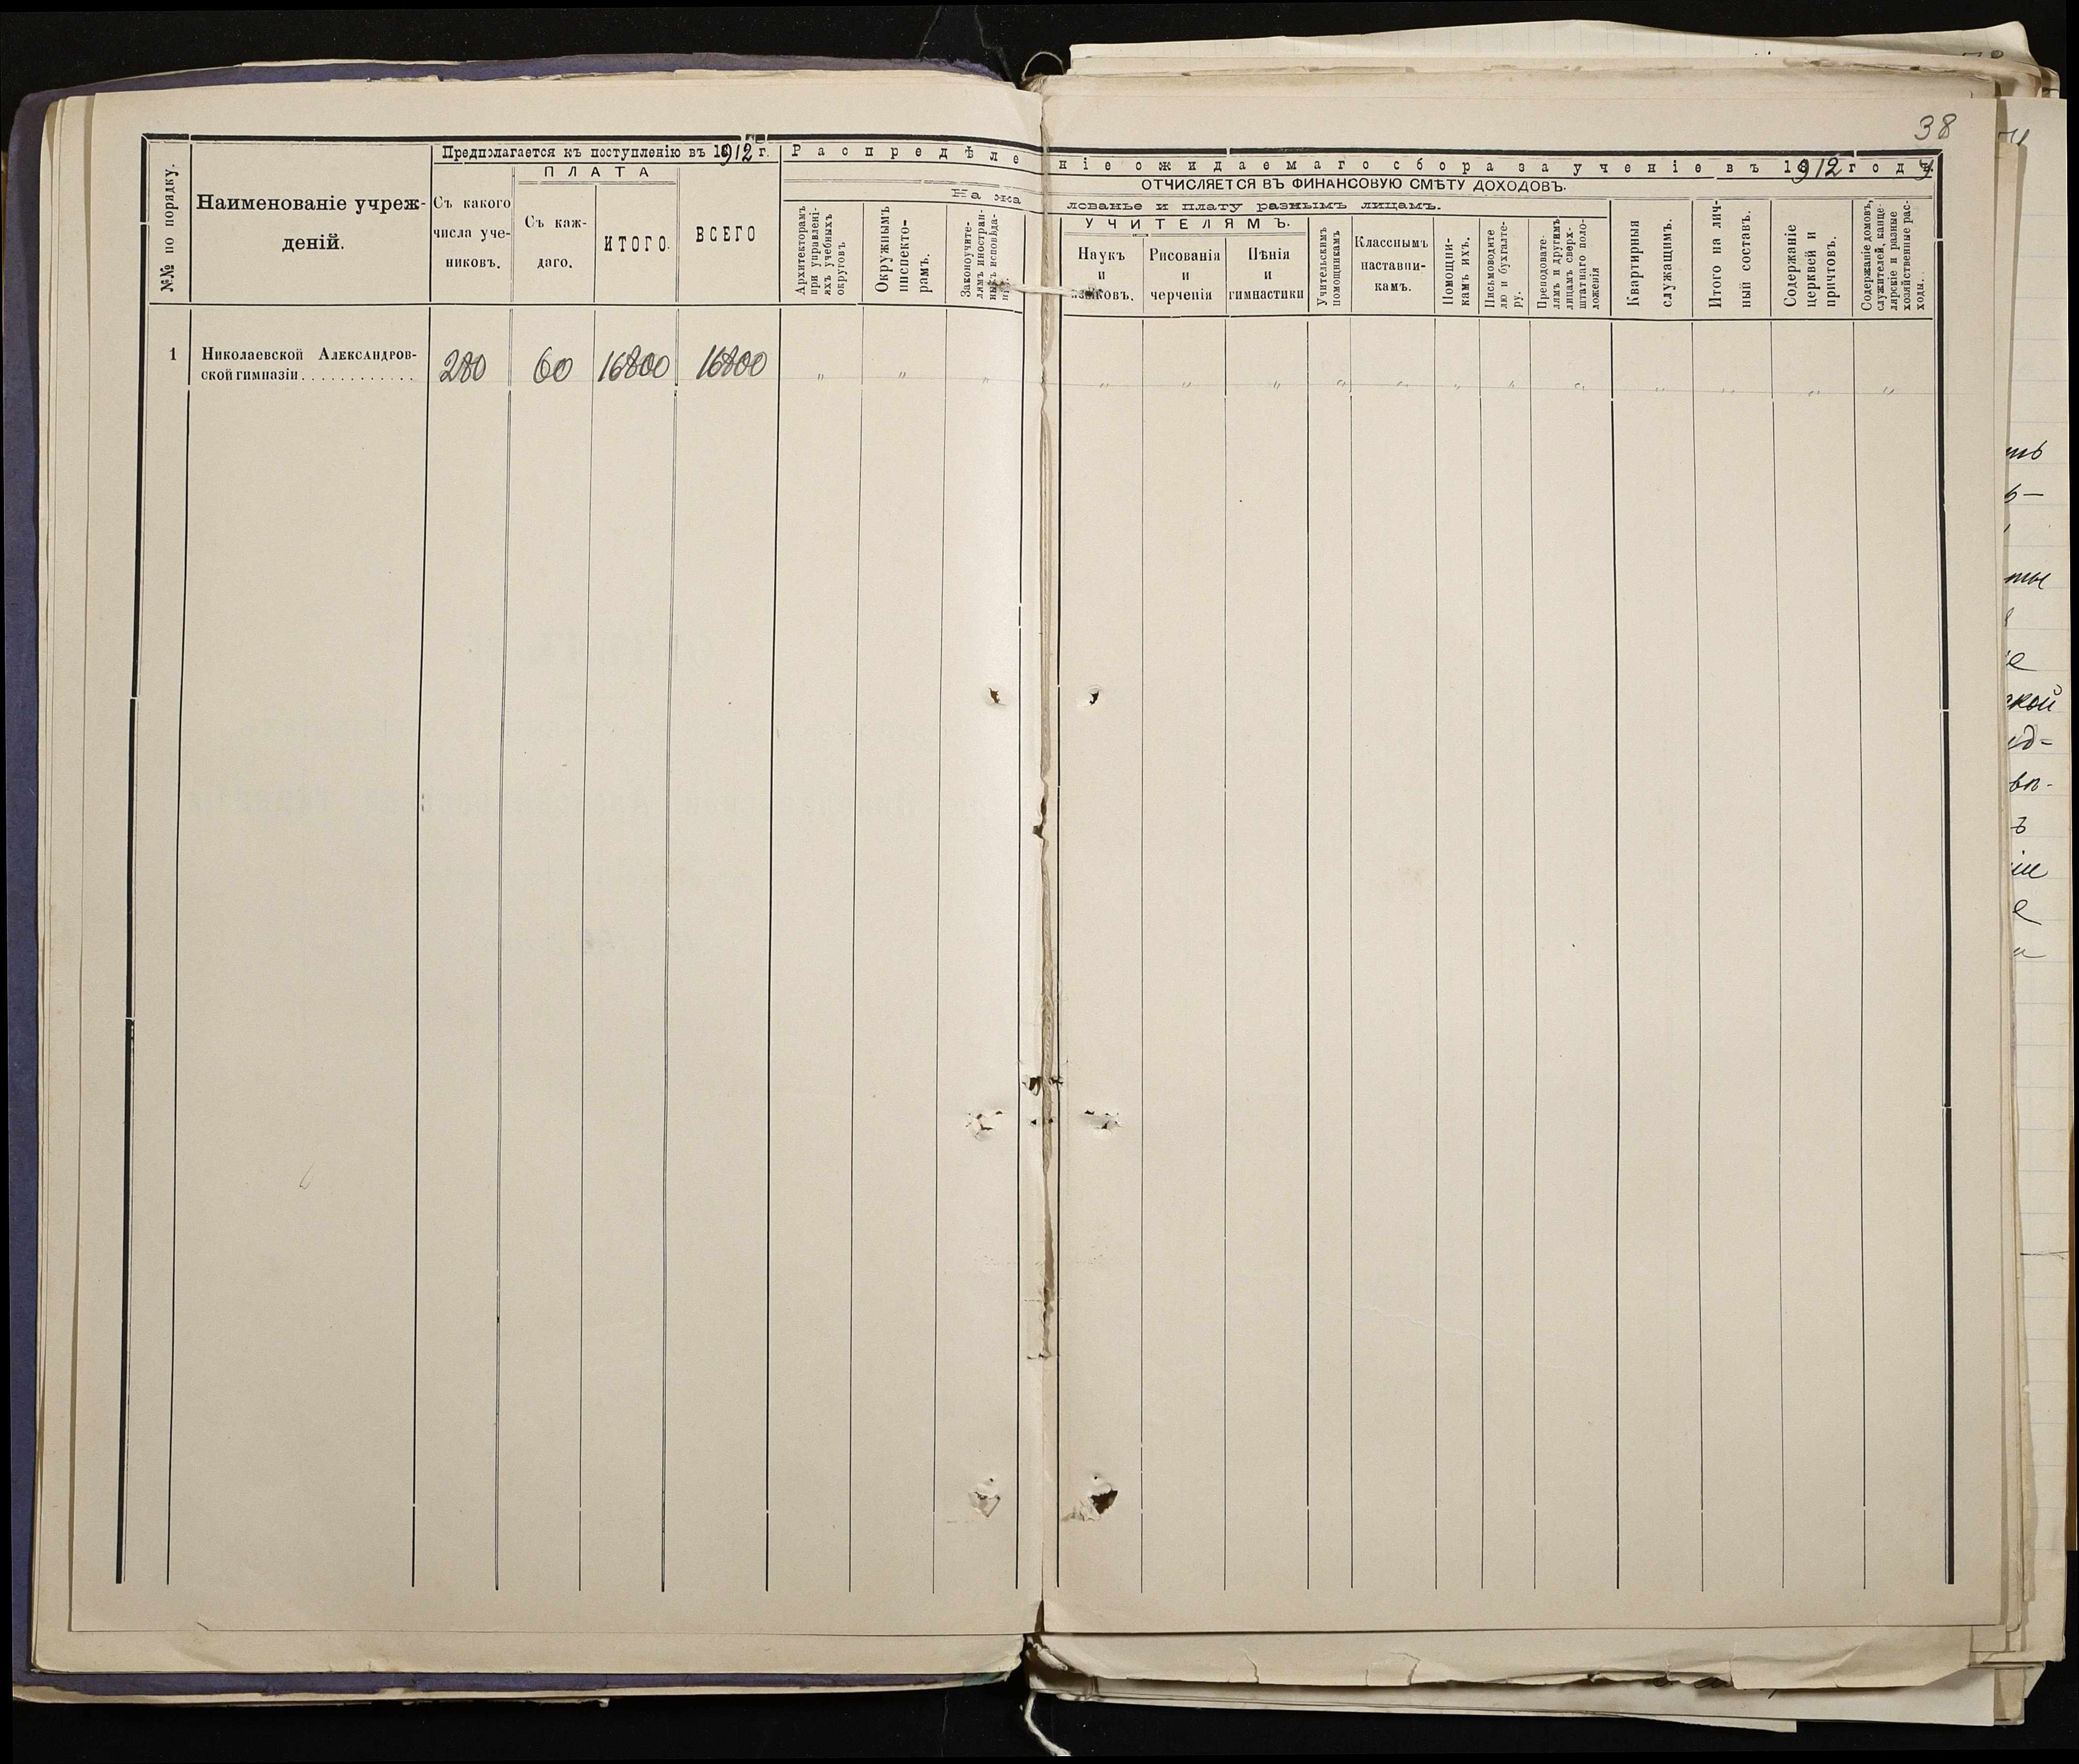 38
Предполагается къ поступленію въ 1912 г.
Распредѣле
ніе ожидаемаго сбора за ученіе въ 1912 году
ПЛАТА
ОТЧИСЛЯЕТСЯ ВЪ ФИНАНСОВУЮ СМѢТУ ДОХОДОВЪ.
На жа
лованье и плату разнымъ лицамъ.
№№ по порядку.
Наименованіе учреж-
деній.
Съ какого
числа уче-
никовъ.
Съ каж-
даго.
ИТОГО.
ВСЕГО
Архитекторамъ
при управлені-
яхъ учебныхъ
округовъ
Окружнымъ
инспекто-
рамъ.
Законоучите-
лямъ иностран-
УЧИТЕЛЯМЪ.
Наукъ
и
языковъ.
Рисованія
и
черченія
Пѣнія
и
гимнастики
Учительскимъ
помощникамъ
Класснымъ
наставни-
камъ.
Помощни-
камъ ихъ.
Письмоводите
лю и бухгалте-
ру.
Преподовате-
лямъ и другимъ
лицамъ сверх-
штатнаго поло-
женія
Квартирныя
служащимъ.
Итого на лич-
ный составъ.
Содержаніе
церквей и
причтовъ.
Содержаніе домовъ,
служителей, канце-
лярскіе и разные
хозяйственные рас-
ходы.
1 Николаевской Александров-
ской гимназіи............ 280 60 16800 16800 " " " " " " " " " " " " " " "